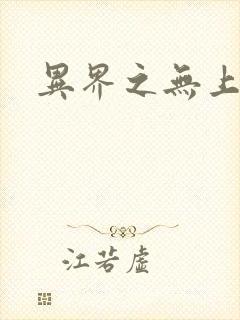 異界之無上
江若虛